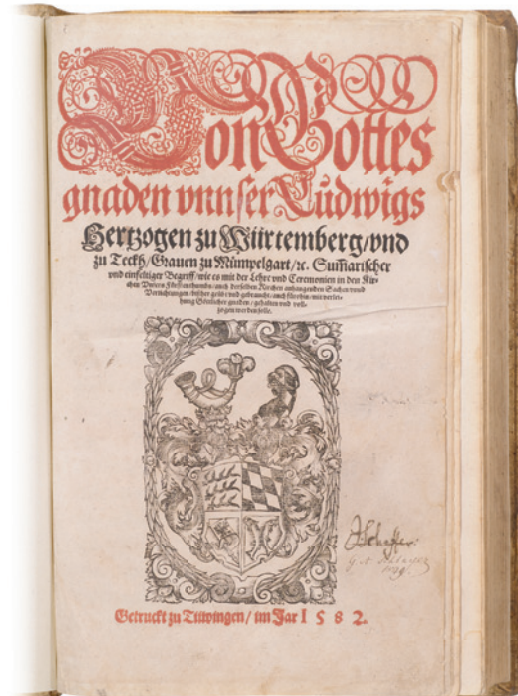 Von Gottes
gnaden vnnser Ludwigs
Hertzogen zu Würtemberg/vnd
zu Teckh/Grauen zu Mümpelgart/ꝛc. Sum̃arischer
vnd einfeltiger Begriff/wie es mit der Lehre vnd Ceremonien in den Kir-
chen Vnsers Fürstenthumbs/auch derselben Kirchen anhangenden Sachen vnnd
Verrichtungen/bißher geübt vnd gebraucht/auch fürohin/mit verlei-
hung Göttlicher gnaden/gehalten vnd voll-
zogen werden solle.
Getruckt zu Tüwingen/im Jar 1 5 8 2.